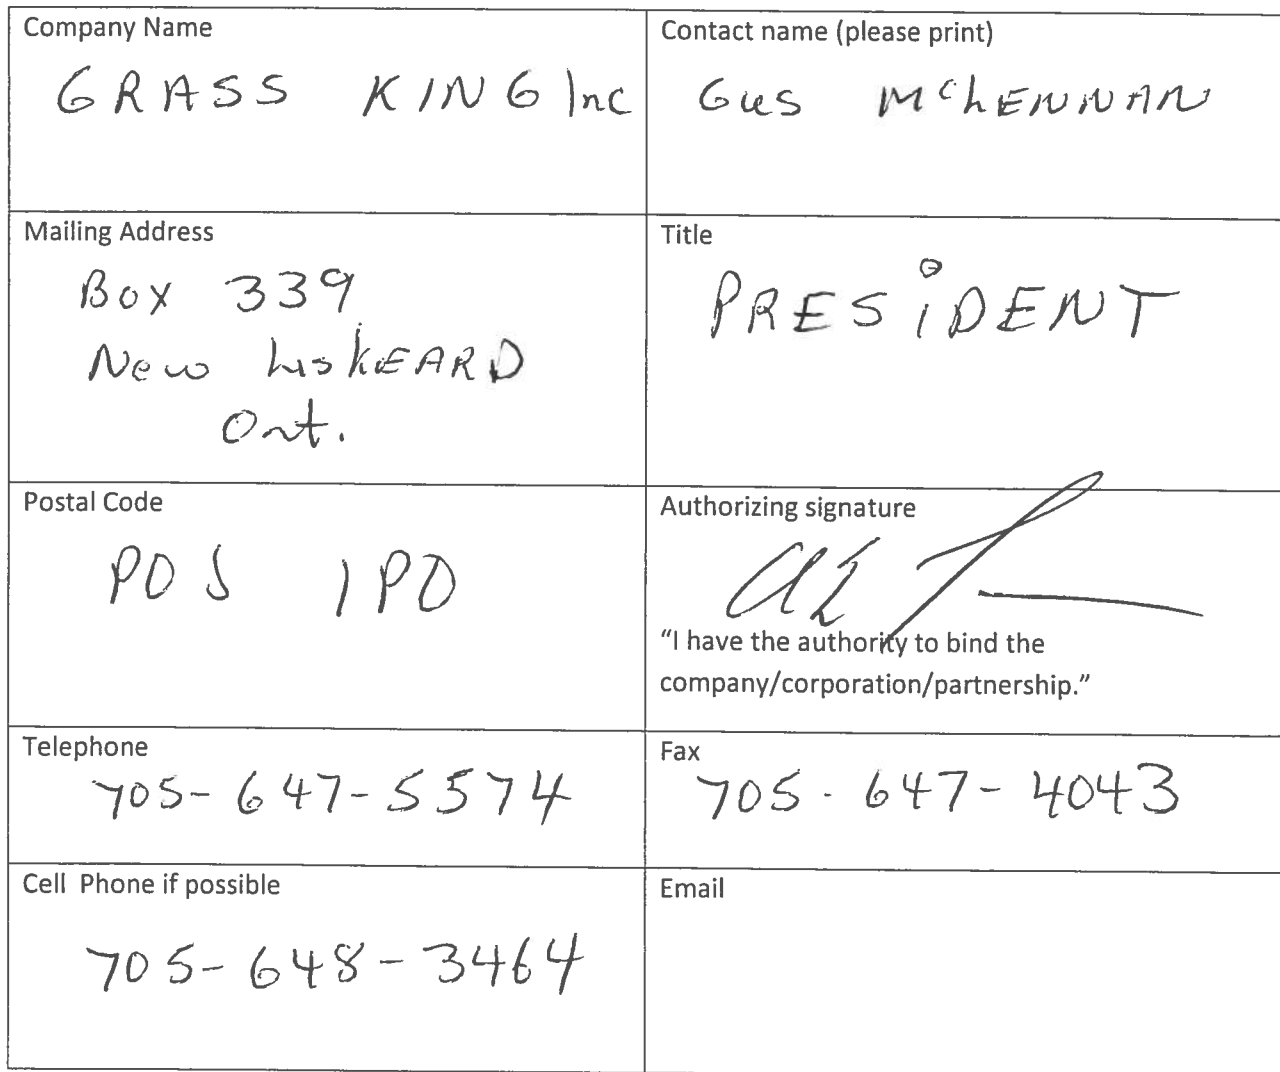 Company Name
GRASS KING Inc
Contact name (please print)
Gus McLENNAN
Mailing Address
Box 339
New LisKEARD
Ont.
Title
PRESiDENT
Postal Code
P0J 1P0
Authorizing signature
"I have the authority to bind the
company/corporation/partnership."
Telephone
705-647-5574
Fax
705-647-4043
Cell Phone if possible
705-648-3464
Email